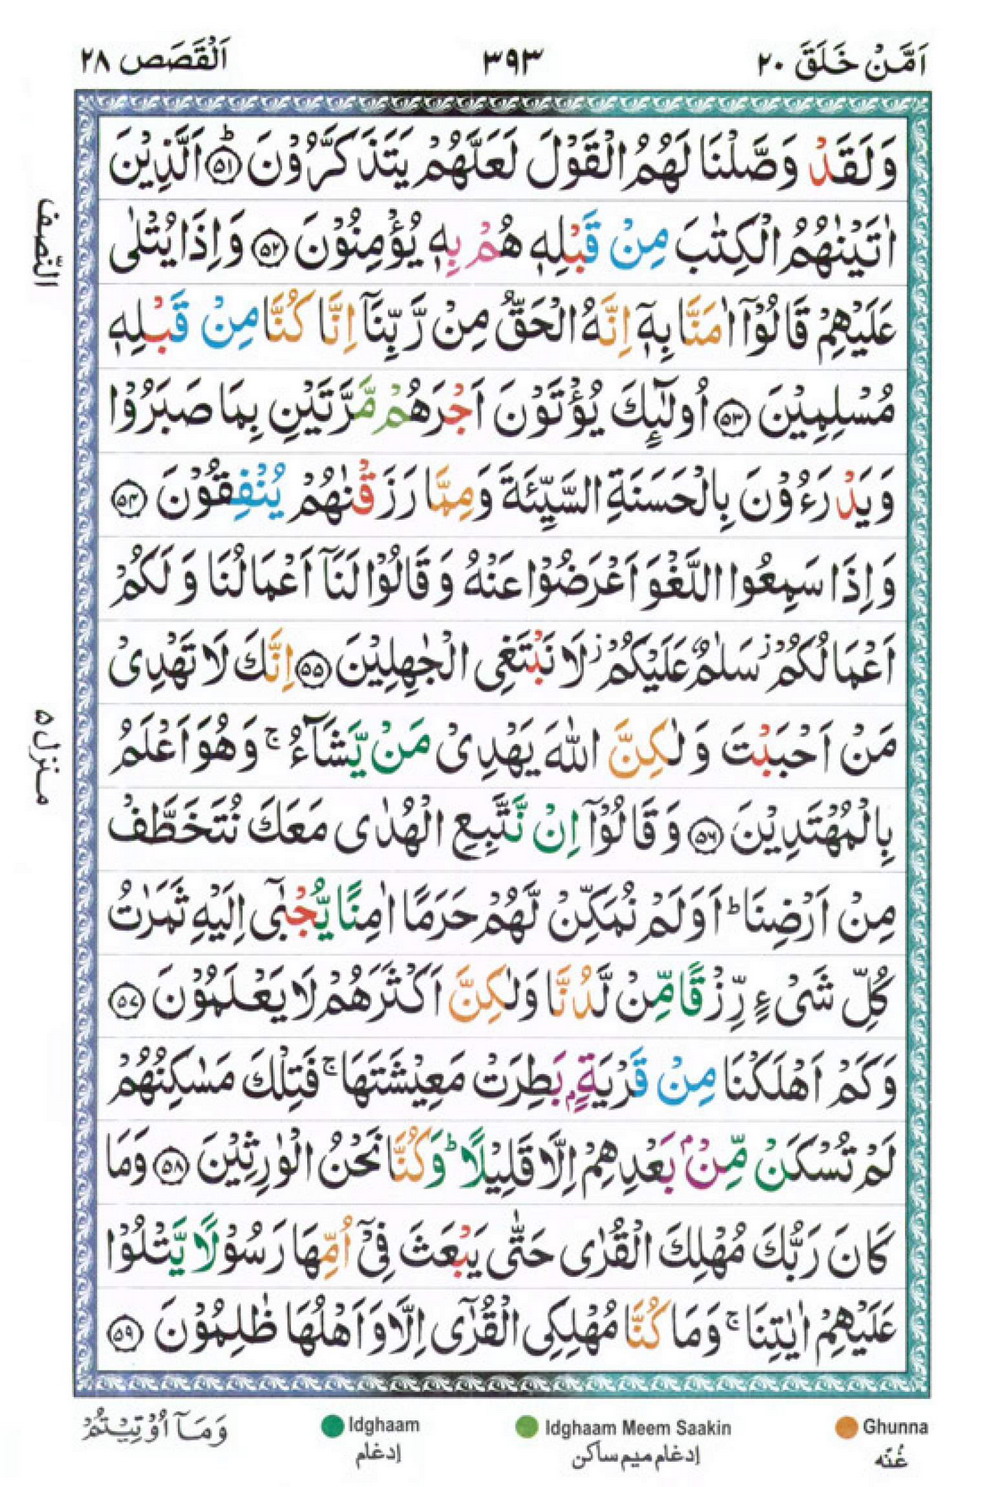 اَمَّنْ خَلَقَ ٢٠ ٣٩٣ اَلْقَصَص ٢٨
وَلَقَدْ وَصَّلْنَا لَهُمُ الْقَوْلَ لَعَلَّهُمْ يَتَذَكَّرُوْنَ ؕ﴿۵۱﴾ اَلَّذِيْنَ
اٰتَيْنٰهُمُ الْكِتٰبَ مِنْ قَبْلِهٖ هُمْ بِهٖ يُؤْمِنُوْنَ ﴿۵۲﴾ وَاِذَا يُتْلٰى
عَلَيْهِمْ قَالُوْۤا اٰمَنَّا بِهٖۤ اِنَّهُ الْحَقُّ مِنْ رَّبِّنَاۤ اِنَّا كُنَّا مِنْ قَبْلِهٖ
مُسْلِمِيْنَ ﴿۵۳﴾ اُولٰٓئِكَ يُؤْتَوْنَ اَجْرَهُمْ مَّرَّتَيْنِ بِمَا صَبَرُوْا
وَيَدْرَءُوْنَ بِالْحَسَنَةِ السَّيِّئَةَ وَمِمَّا رَزَقْنٰهُمْ يُنْفِقُوْنَ ﴿۵۴﴾
وَاِذَا سَمِعُوا اللَّغْوَ اَعْرَضُوْا عَنْهُ وَقَالُوْا لَنَاۤ اَعْمَالُنَا وَلَكُمْ
اَعْمَالُكُمْ ز سَلٰمٌ عَلَيْكُمْ ز لَا نَبْتَغِى الْجٰهِلِيْنَ ﴿۵۵﴾ اِنَّكَ لَا تَهْدِىْ
مَنْ اَحْبَبْتَ وَلٰكِنَّ اللّٰهَ يَهْدِىْ مَنْ يَّشَآءُ ۚ وَهُوَ اَعْلَمُ
بِالْمُهْتَدِيْنَ ﴿۵۶﴾ وَقَالُوْۤا اِنْ نَّتَّبِعِ الْهُدٰى مَعَكَ نُتَخَطَّفْ
مِنْ اَرْضِنَا ؕ اَوَلَمْ نُمَكِّنْ لَّهُمْ حَرَمًا اٰمِنًا يُّجْبٰٓى اِلَيْهِ ثَمَرٰتُ
كُلِّ شَىْءٍ رِّزْقًا مِّنْ لَّدُنَّا وَلٰكِنَّ اَكْثَرَهُمْ لَا يَعْلَمُوْنَ ﴿۵۷﴾
وَكَمْ اَهْلَكْنَا مِنْ قَرْيَةٍۭ بَطِرَتْ مَعِيْشَتَهَا ۚ فَتِلْكَ مَسٰكِنُهُمْ
لَمْ تُسْكَنْ مِّنْۢ بَعْدِهِمْ اِلَّا قَلِيْلًا ؕ وَكُنَّا نَحْنُ الْوٰرِثِيْنَ ﴿۵۸﴾ وَمَا
كَانَ رَبُّكَ مُهْلِكَ الْقُرٰى حَتّٰى يَبْعَثَ فِىْۤ اُمِّهَا رَسُوْلًا يَّتْلُوْا
عَلَيْهِمْ اٰيٰتِنَا ۚ وَمَا كُنَّا مُهْلِكِى الْقُرٰٓى اِلَّا وَاَهْلُهَا ظٰلِمُوْنَ ﴿۵۹﴾
النّصف
منزل ۵
Ghunna Idghaam Meem Saakin Idghaam
غُنّه إدغام ميم ساكن إدغام
وَمَآ اُوْتِيْتُمْ